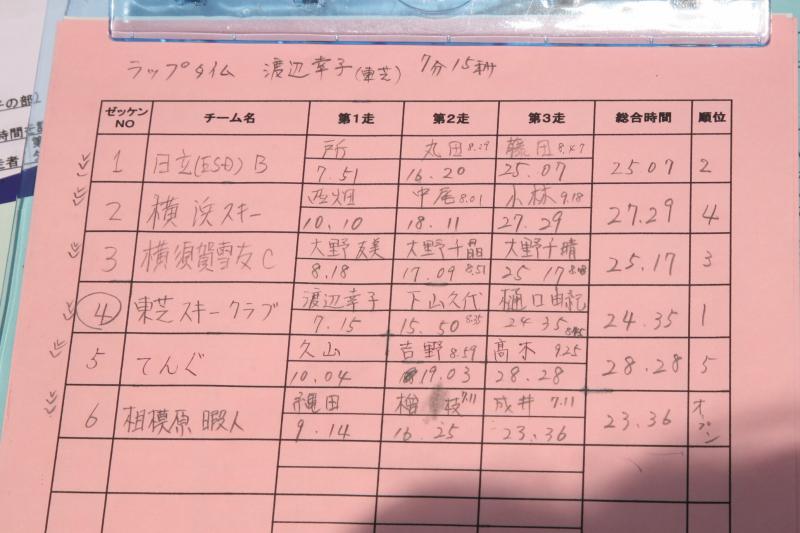 ラップタイム 渡辺幸子(東芝) 7分15秒
ゼッケンNO チーム名 第1走 第2走 第3走 総合時間 順位
所 丸田 8.29 藤田 8.47
1 日立(ESD) B 7.51 16.20 25.07 25.07 2
西畑 中尾 8.01 小林 9.18
2 横浜スキー 10.10 18.11 27.29 27.29 4
大野友美 大野千晶 大野千晴
3 横須賀雪友C 8.18 17.09 8.51 25.17 25.17 3
渡辺幸子 下山久代 樋口由紀
4 東芝スキークラブ 7.15 15.50 8.35 24.35 8.45 24.35 1
久山 吉野 8.59 高木 925
5 てんぐ 10.04 19.03 28.28 28.28 5
縄田 枝 7.11 成井 7.11
6 相模原 暇人 9.14 16.25 23.36 23.36 オープン
の部)
時間
走者